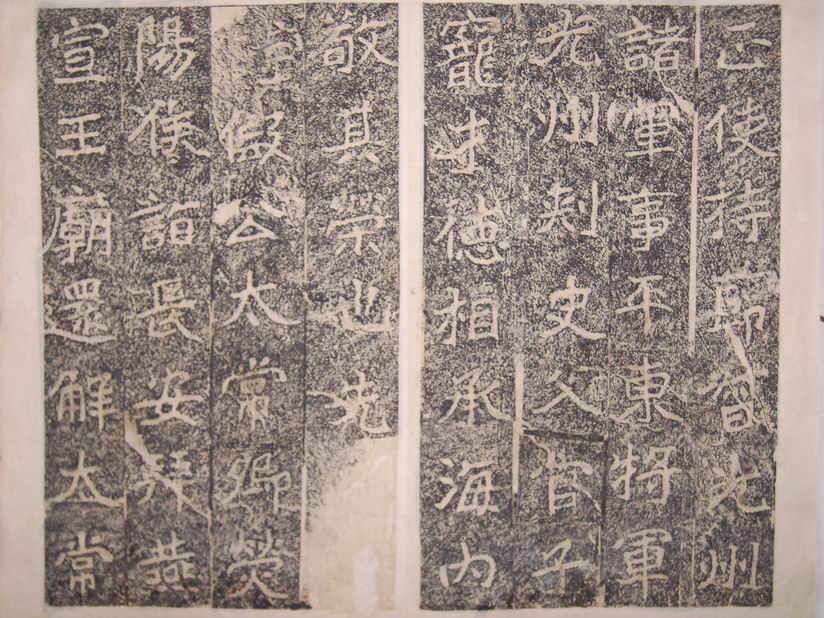 正使持節督光州
諸軍事平東將軍
光州刾史父官子
寵才德相承海內
敬其榮也先
假公太常卿熒
陽侯詣長安拜燕
宣王廟還解太常